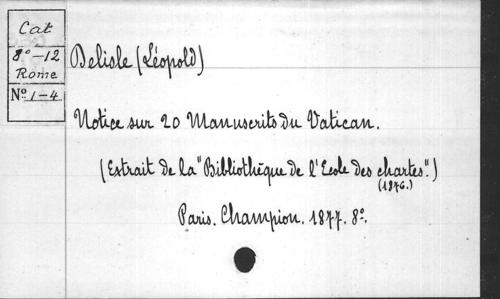 Cat
8° -12
Rome
Nº 1-4
Delisle (Léopold)
Notice sur 20 Manuscrits du Vatican.
(Extrait de la "Bibliothèque de l'Ecole des chartes".)
(1876.)
Paris. Champion. 1877. 8°.